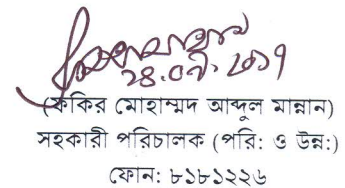 ২৪.০৭.২০১৭
(ফকির মোহাম্মদ আব্দুল মান্নান)
সহকারী পরিচালক (পরি: ও উন্ন:)
ফোন: ৮১৮১২২৬